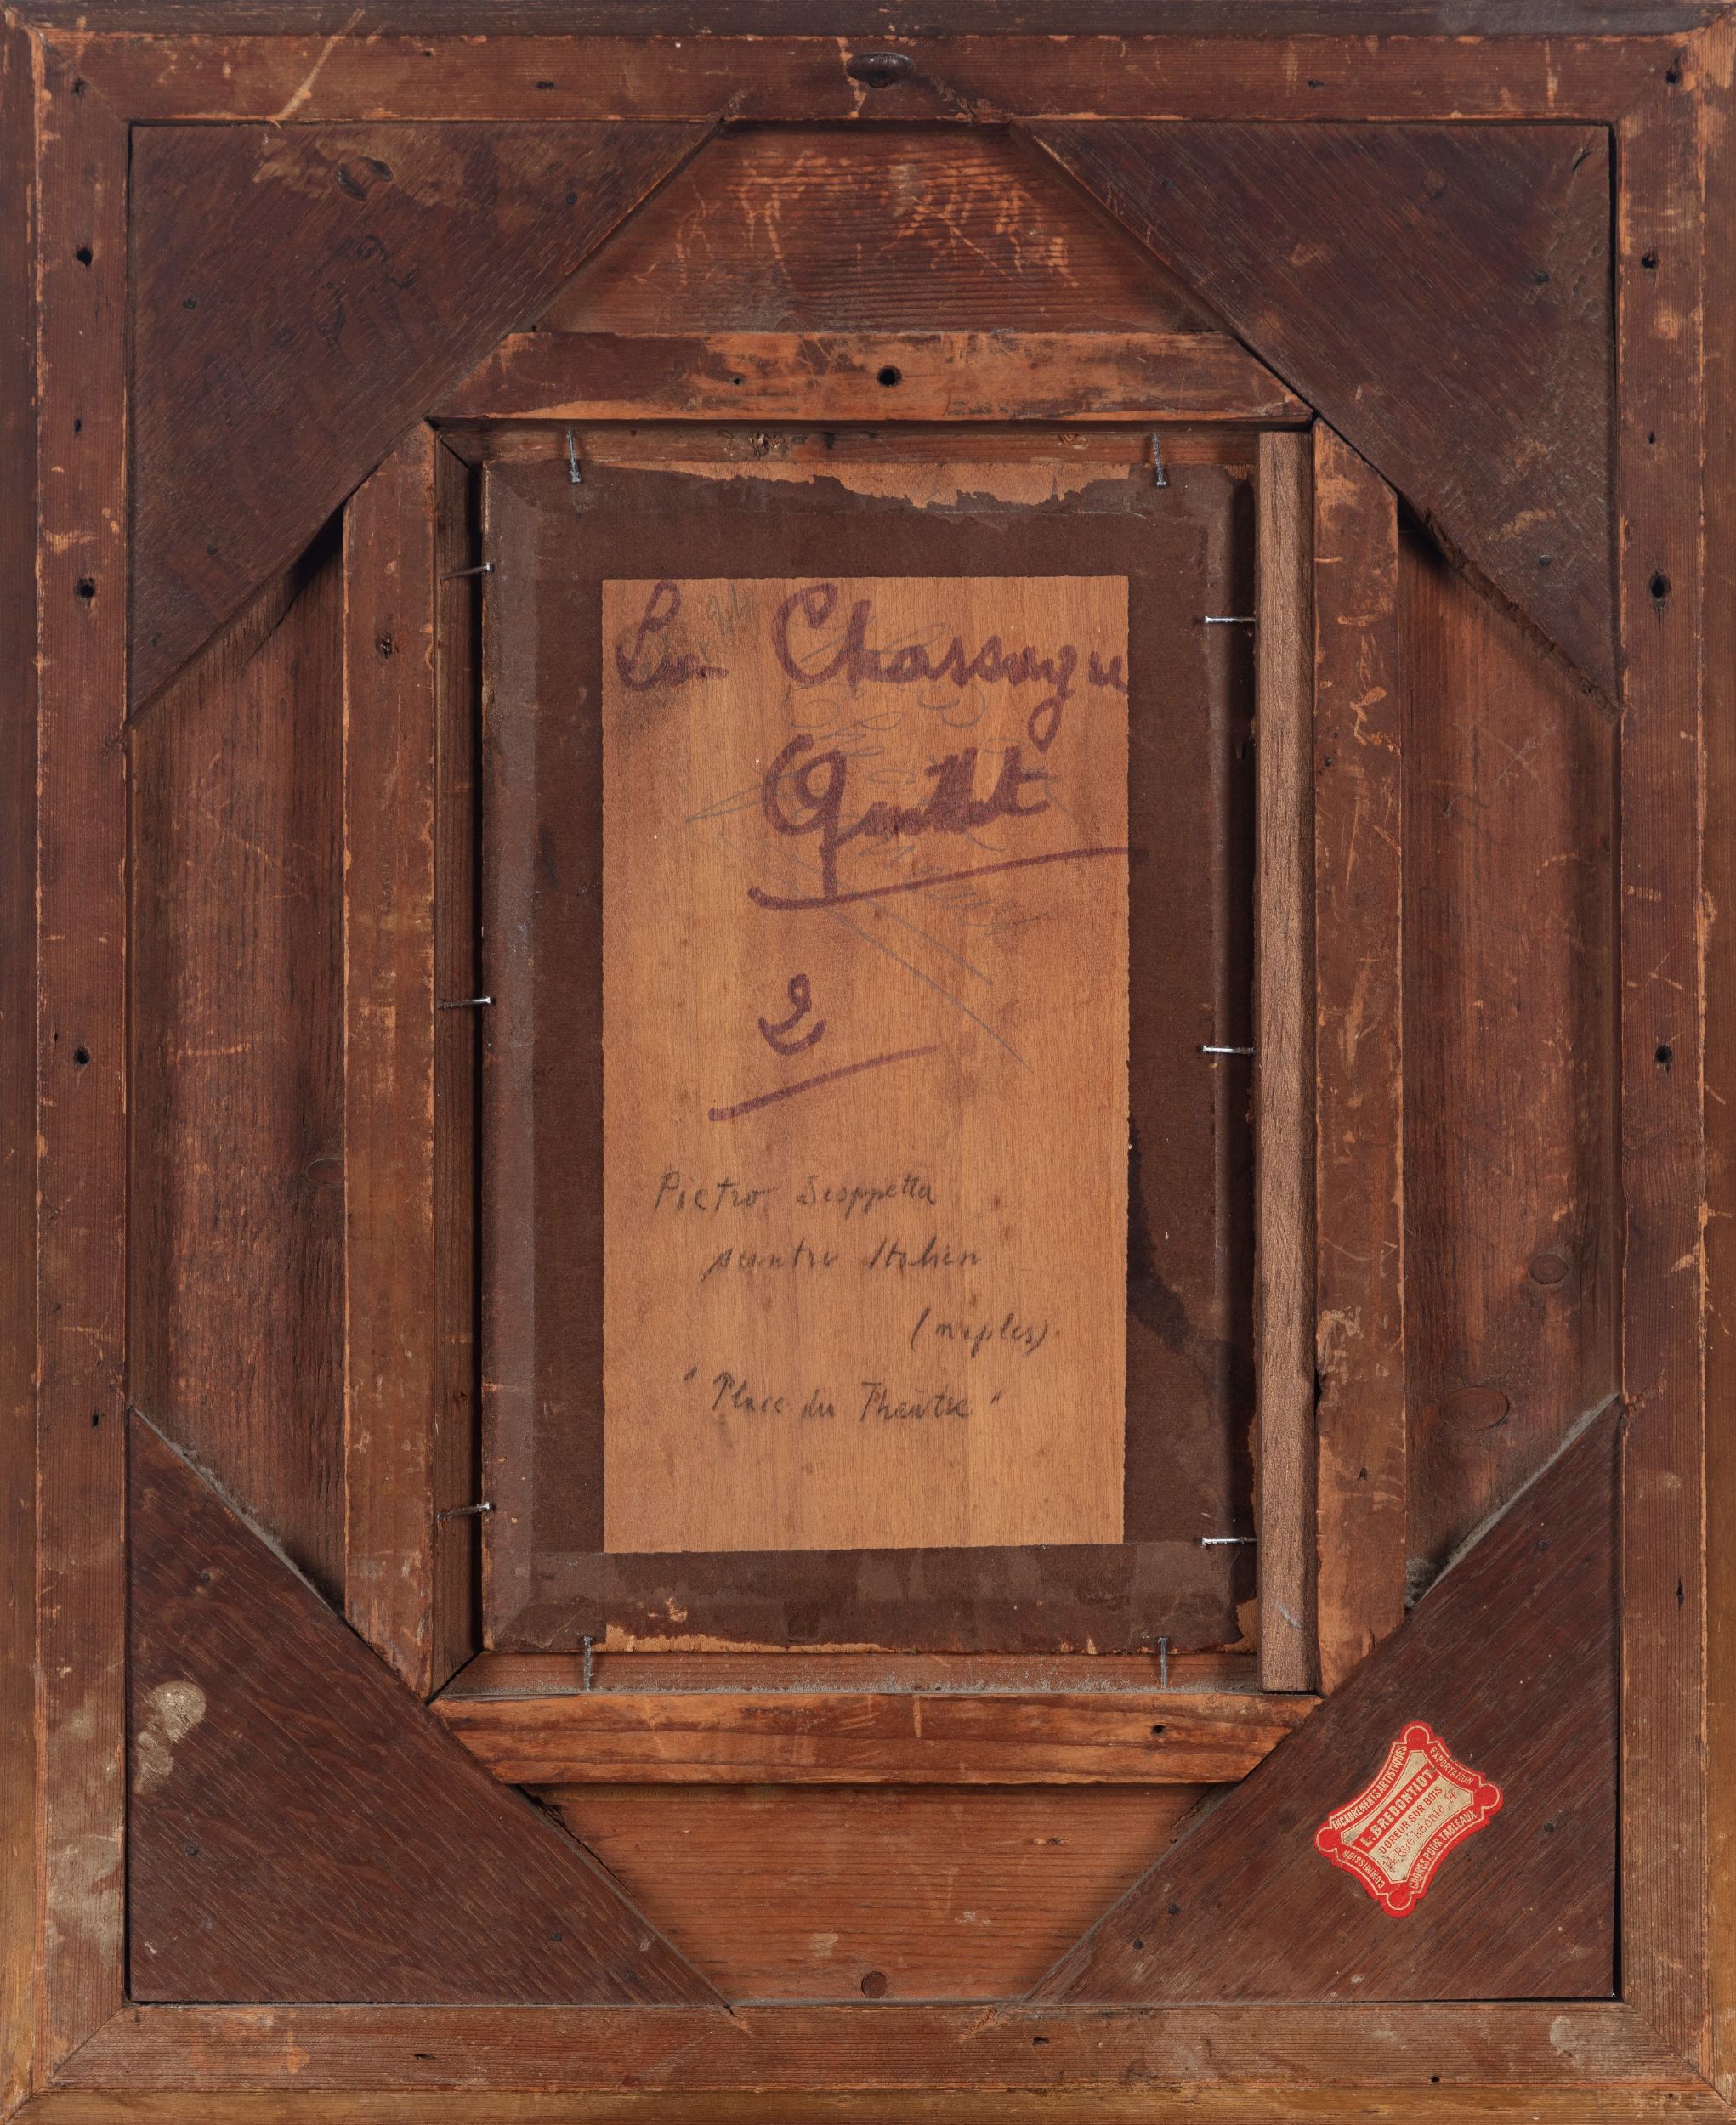 La Chassagne
Quillet
2
Pietro Scoppetta
peintre Italien
(naples)
" Place du Théâtre "
ENCADREMENTS ARTISTIQUES
EXPORTATION
L. BREDONTIOT
DOREUR SUR BOIS
14, Rue Léonie, 14
CADRES POUR TABLEAUX
COMMISSION